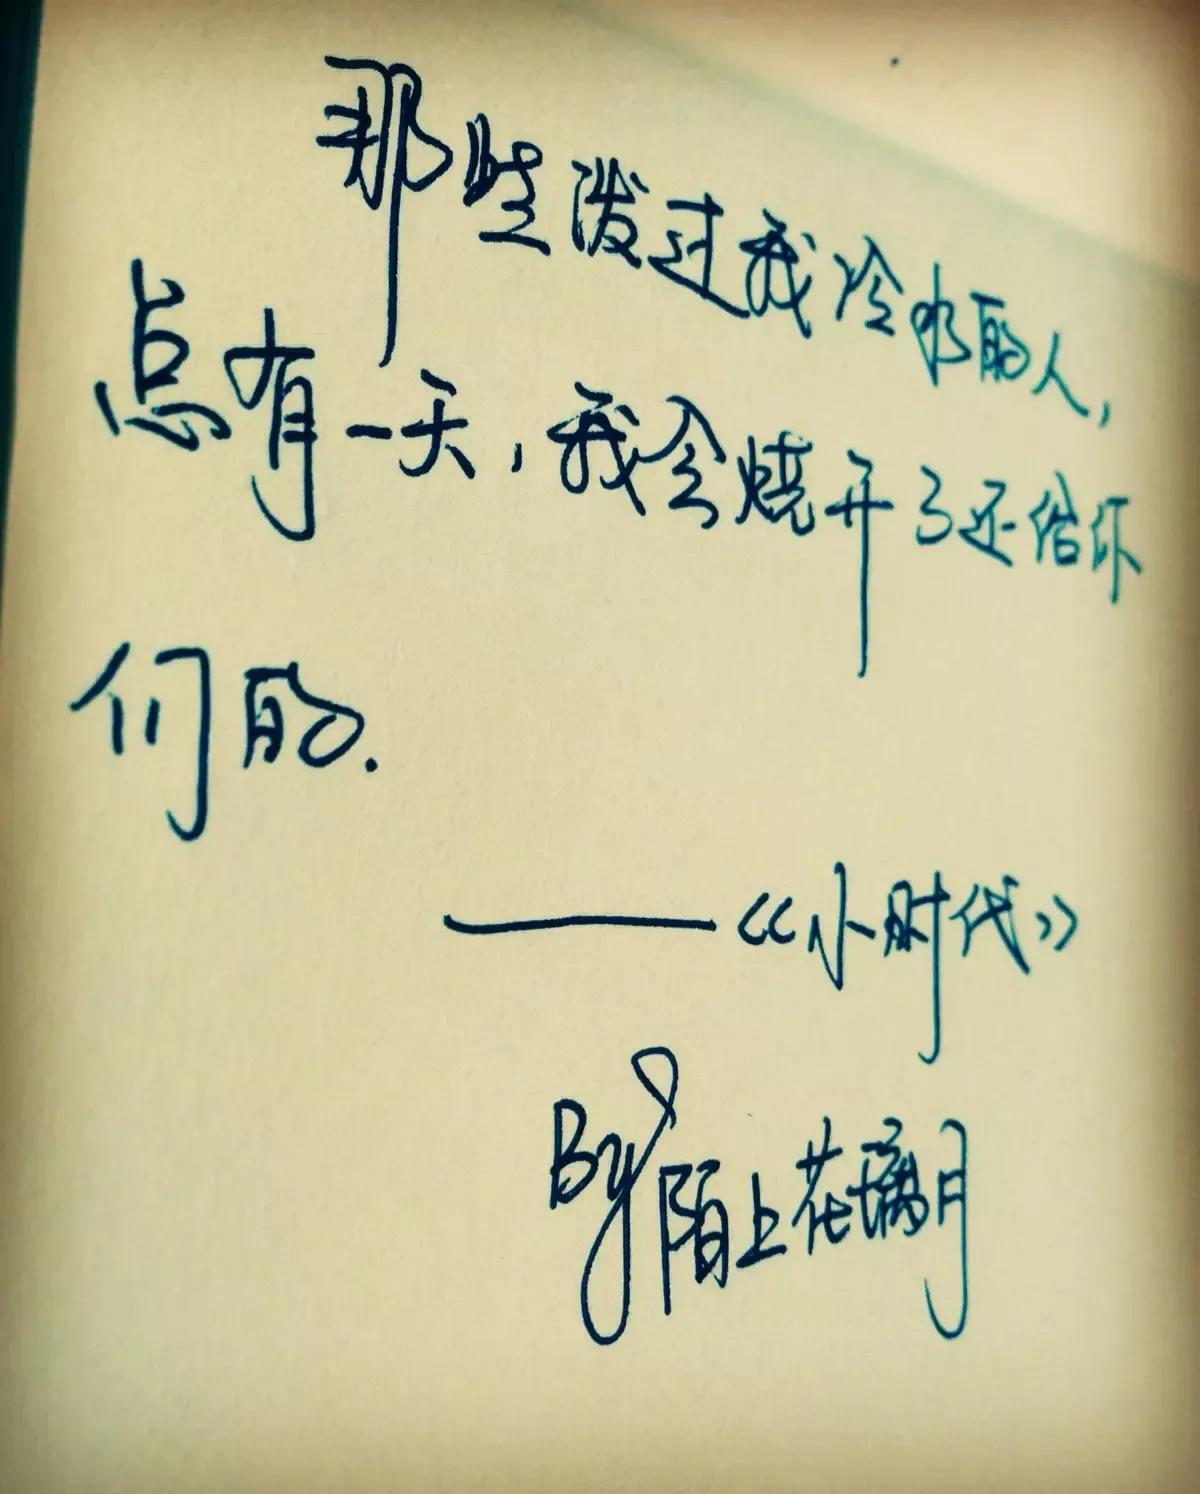 那些泼过我冷水的人,
总有一天,我会烧开了还给你
们的.
——《小时代》
By 陌上花璃月